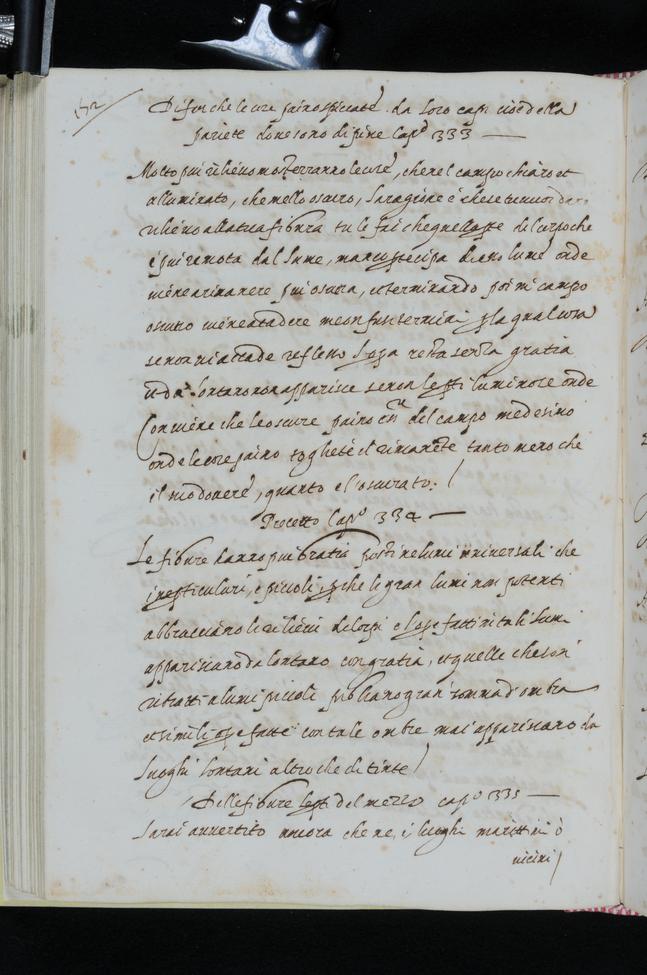 132
Di far che le cose paino spiccate da loro capi cioè della
pariete dove sono dipinte Capº 333
Molto piu rilievo mosterranno le cose, che nel campo chiaro et
alluminato, che nello oscuro, la ragione è che se tu vuoi dar
rilievo alla tua figura tu le fai che quella pte del corpo che
è piu remota dal lume, manco pticipa di esso lume onde
viene a rimanere piu oscura, et terminando poi in campo
oscuro viene a cadere in confusi termini p la qual cosa
se non vi accade reflesso l'opa resta senza gratia
et da lontano non apparisce se non le pti luminose onde
Conviene che le oscure paino esser del campo medesimo
onde le cose paino tagliate el rimanente tanto meno che
il suo dovere, quanto e l'oscurato.
Precetto Capº 334
Le figure hanno piu gratia poste ne lumi universali che
ne pticulari, e piccoli, pche li gran lumi non potenti
abbracciano li rilievi de corpi e l'ope fatte in tali lumi
appariscano da lontano con gratia, et quelle che son
ritratte a lumi piccoli pigliano gran somma d'ombra
et simili ope fatte con tale ombre mai appariscano da
luoghi lontani altro che di tinte
Delle figure le pti del mezzo capº 335
Sarai avvertito ancora che ne i luoghi marittimi ò
vicini